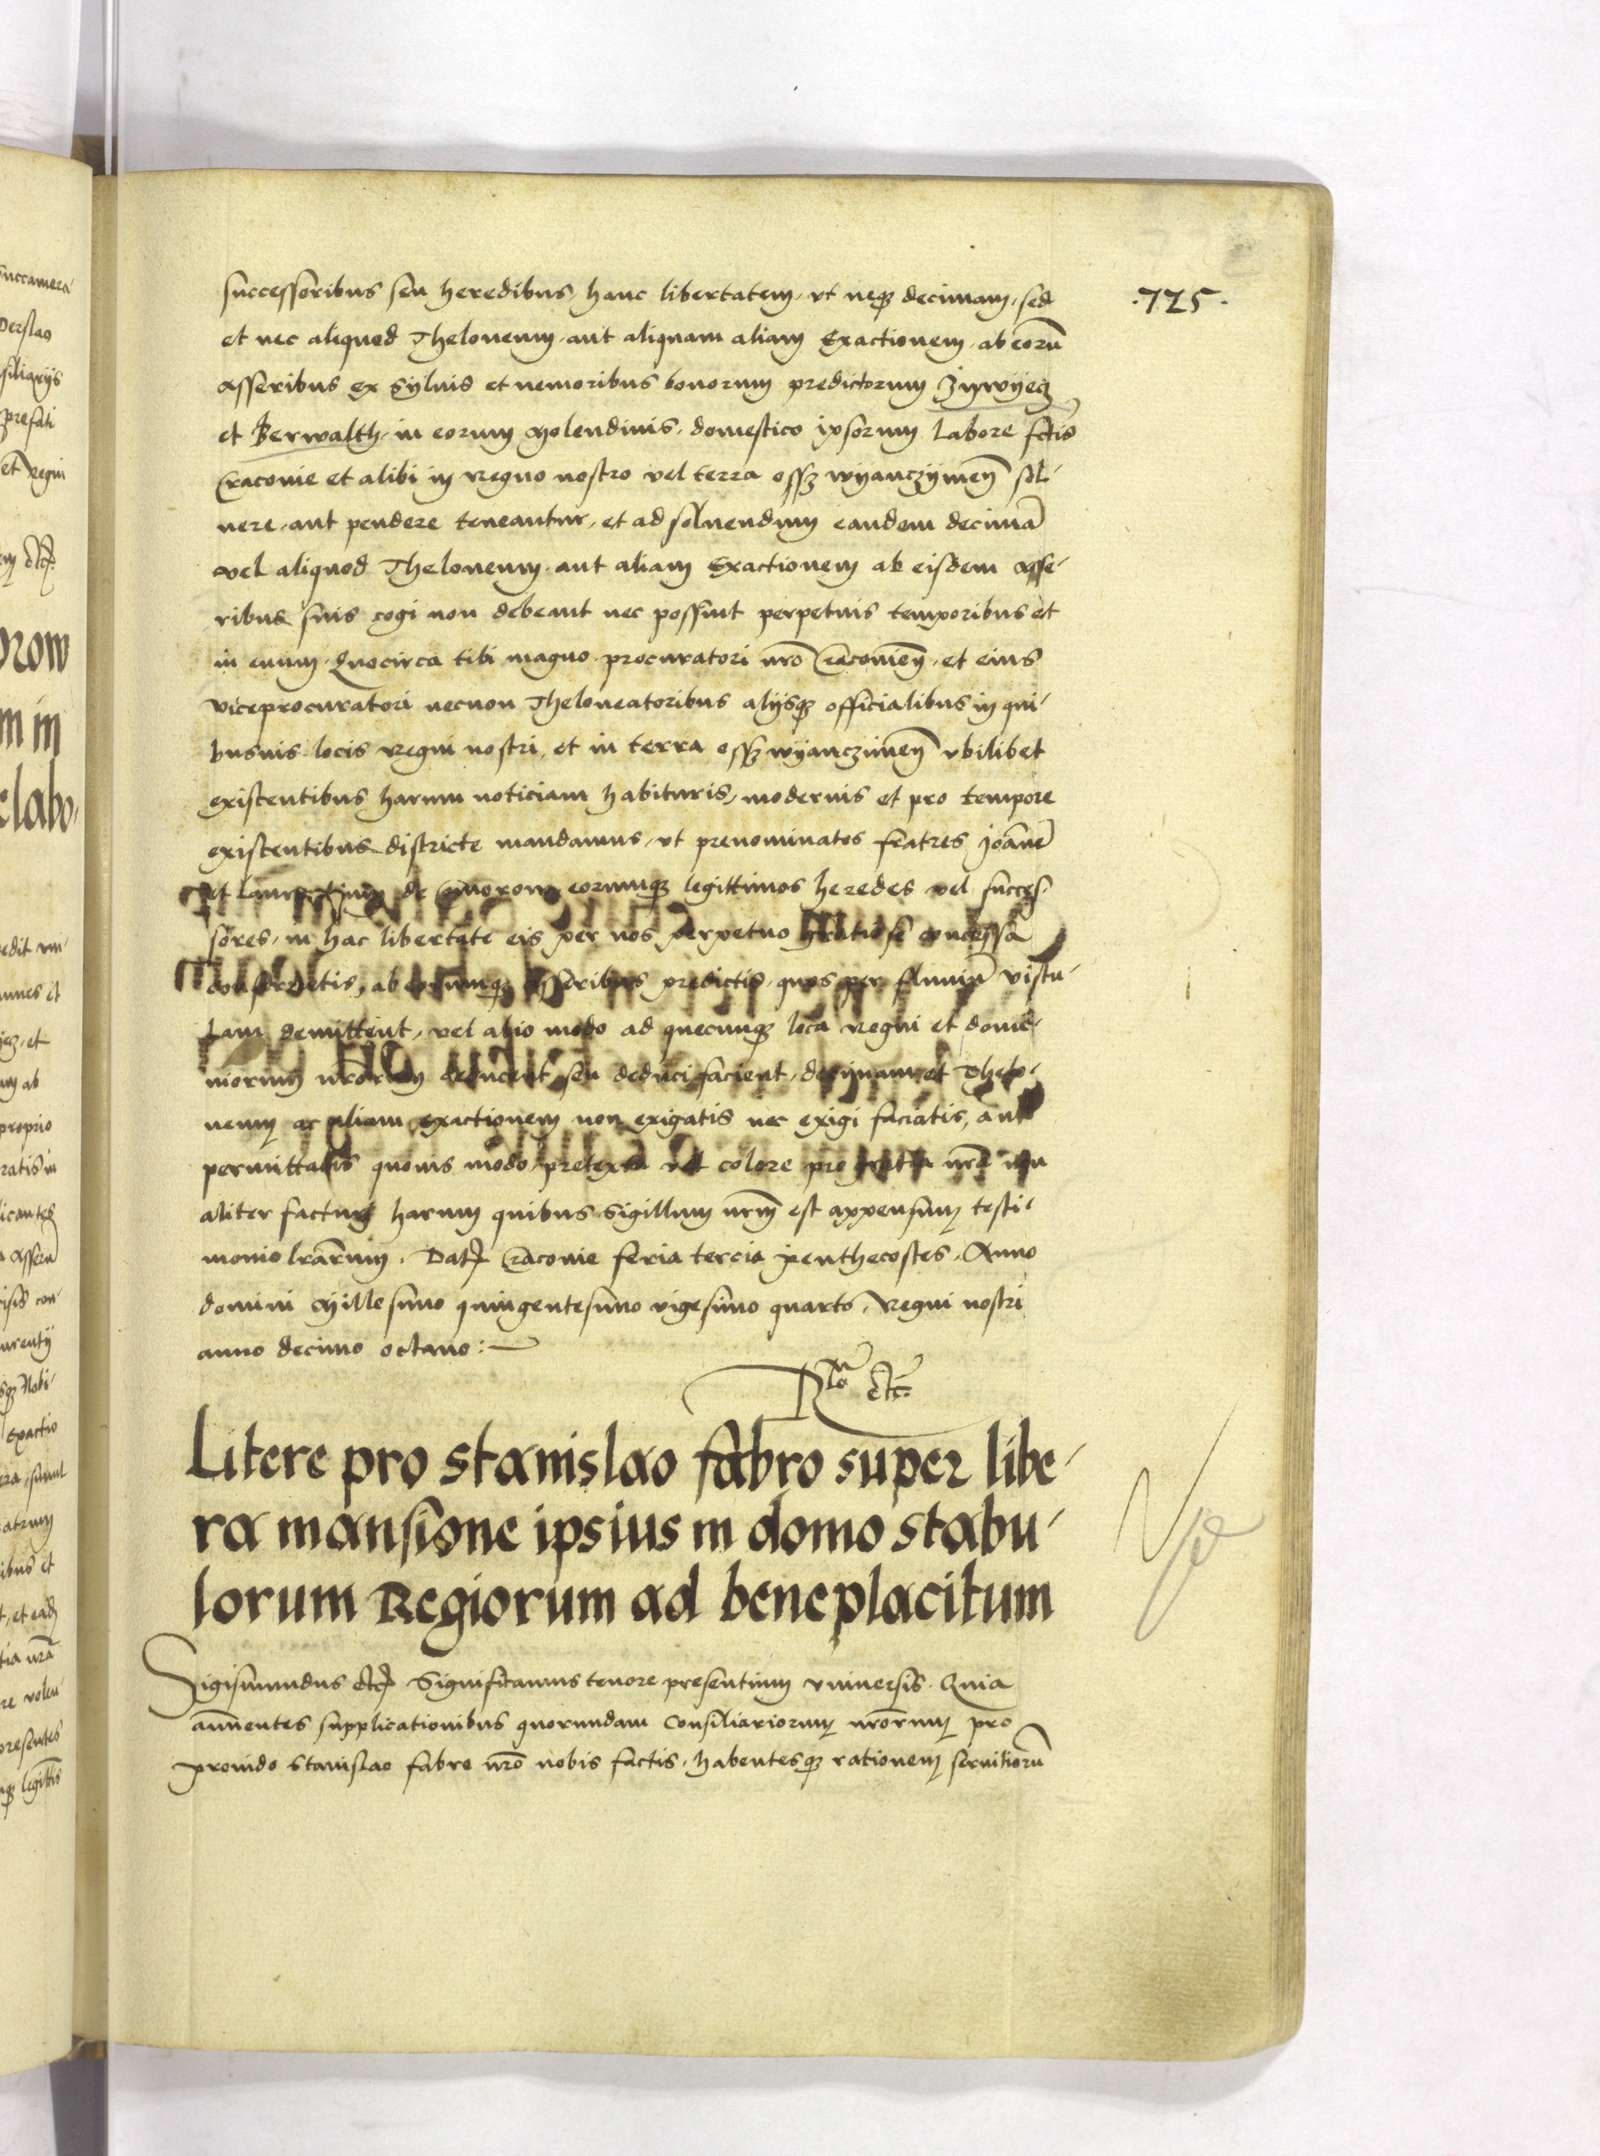 ·725·
successoribus seu heredibus, hanc libertatem, vt neq decimam, sed
et nec aliquod Theloneum, aut aliquam aliam Exactionem, ab eorū
asseribus ex Sylvis et nemoribus bonorum predictorum Zywyecz
et Berwalth, in eorum Molendinis, domestico ipsorum Labore fctis
Cracovie et alibi in regno nostro vel terra osszwyanczymeñ sol-
uere, aut pendere teneantur, et ad soluendum eandem decimā
vel aliquod Theloneum, aut aliam Exactionem ab eisdem asse-
ribus suis cogi non debeant nec possint perpetuis temporibus et
in euum. Quocirca tibi magno procuratori nro Cracovieñ, et eius
viceprocuratori necnon Theloneatoribus alijsq officialibus in qui-
busuis locis regni nostri, et in terra osszwyanczimeñ vbilibet
existentibus harum noticiam habituris, modernis et pro tempore
existentibus districte mandamus, vt prenominatos fratres Joānē
et Laurentium de Comorow eorumq legittimos heredes vel succes-
sores, in hac libertate eis per nos perpetuo gratiose concessa
conseruetis, ab eorumq asseribus predictis, quos per fluuiū vistu-
lam demittent, vel alio modo ad quecunq loca regni et domi-
niorum nrorum deducent seu deduci facient, decimam et Thelo-
neum ac aliam exactionem non exigatis nec exigi faciatis, aut
permittatis quouis modo, pretextu vel colore pro gratia nra non
aliter facturi harum quibus Sigillum nrm est appensum testi-
monio lrarum. Dat Cracovie feria tercia penthecostes, Anno
domini Millesimo quingentesimo vigesimo quarto, regni nostri
anno decimo octauo :
Rlo etc.
Litere pro stanislao fabro super libe-
ra mansione ipsius in domo stabu-
lorum Regiorum ad beneplacitum
Sigismundus etc Significamus tenore presentium vniuersis. Quia
annuentes supplicationibus quorundam Consiliariorum nrorum pro
prouido Stanislao fabro nro nobis factis, habentesq rationem seruitiorū